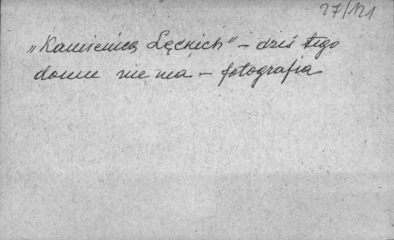 27/121
„Kamienica Lęckich" – dziś tego
domu nie ma – fotografia